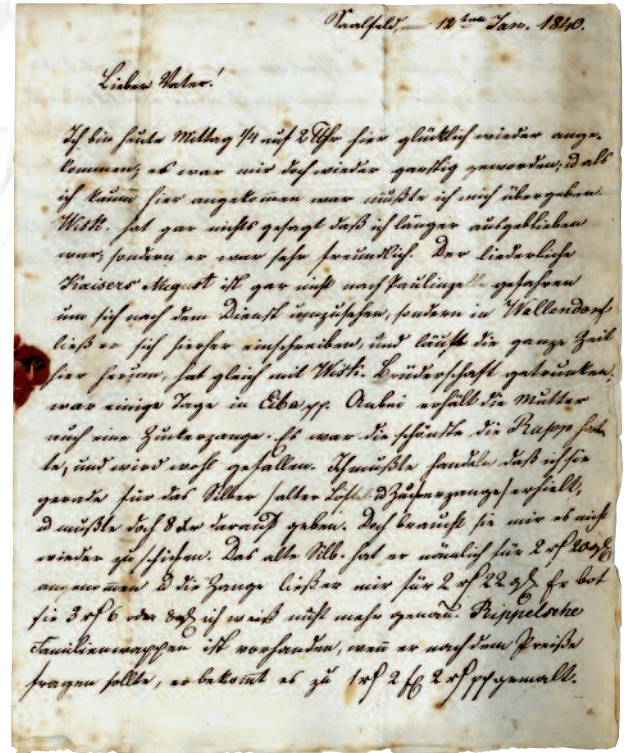 Saalfeld, 12ten Jan. 1840.
Lieber Vater!
Ich bin heute Mittag 1/4 auf 2 Uhr hier glücklich wieder ange-
kommen, es war mir doch wieder garstig geworden, u als
ich kaum hier angekommen war mußte ich mich übergeben.
Wisk. hat gar nichts gesagt daß ich länger ausgeblieben
war, sondern er war sehr freundlich. Der liederliche
Kaisers August ist gar nicht nach Paulinzelle gefahren
um sich nach dem Dienst umzusehen, sondern in Wallendorf
ließ er sich hierher einschreiben, und läuft die ganze Zeit
hier herum, hat gleich mit Wisk. Brüderschaft getrunken,
war einige Tage in Eiba pp. Anbei erhält die Mutter
auch eine Zuckerzange. Es war die schönste die Rapp hat-
te, und wird wohl gefallen. Ich mußte handeln daß ich sie
gerade für das Silber (alter Löffel u Zuckerzange) erhielt,
u mußte doch 8 xr darauf geben. Doch braucht sie mir es nicht
wieder zu schicken. Das alte Silb. hat er nämlich für 2 rf 20
angenommen u die Zange ließ er mir für 2 rf 22 Er bot
sie 3 rf 6 oder 8 ich weiß nicht mehr genau. Rippelsche
Familienwappen ist vorhanden, wenn er nach dem Preiße
fragen sollte, er bekommt es zu 1 rf 2 2 rf pp gemalt.